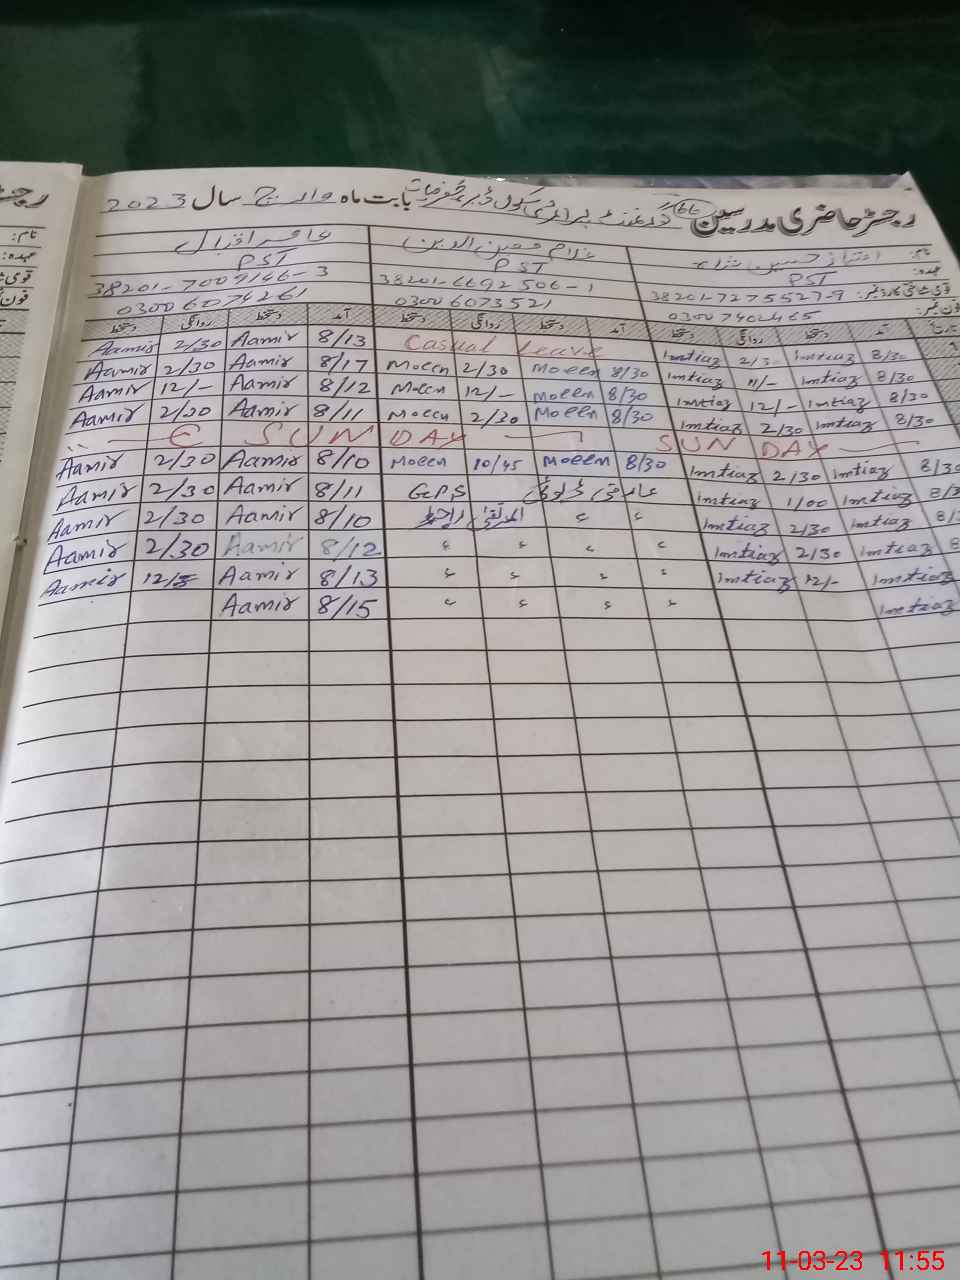 رجسٹر حاضری مدرسین گورنمنٹ پرائمری سکول بابت ماہ مارچ سال 2023
نام: امتیاز حسین غلام معین الدین عامر اقبال
عہدہ: PST PST PST
38201-7275527-9 38201-6692506-1 38201-7009146-3
فون نمبر: 03007402465 03006073521 03006074261
آمد دستخط روانگی دستخط آمد دستخط روانگی دستخط آمد دستخط روانگی دستخط
Aamir 2/30 Aamir 8/13 Casual Leave Imtiaz 2/30 Imtiaz 8/30
Aamir 2/30 Aamir 8/17 Moeen 2/30 Moeen 8/30 Imtiaz 11/- Imtiaz 8/30
Aamir 12/- Aamir 8/12 Moeen 12/- Moeen 8/30 Imtiaz 12/- Imtiaz 8/30
Aamir 2/30 Aamir 8/11 Moeen 2/30 Moeen 8/30 Imtiaz 2/30 Imtiaz 8/30
SUNDAY SUNDAY
Aamir 2/30 Aamir 8/10 Moeen 10/45 Moeen 8/30 Imtiaz 2/30 Imtiaz 8/30
Aamir 2/30 Aamir 8/11 GPS عارضی ڈیوٹی Imtiaz 1/00 Imtiaz 8/3
Aamir 2/30 Aamir 8/10 Imtiaz 2/30 Imtiaz 8/
Aamir 2/30 Aamir 8/12 Imtiaz 2/30 Imtiaz 8
Aamir 12/ Aamir 8/13 Imtiaz 12/- Imtiaz
Aamir 8/15 Imtiaz
11-03-23 11:55